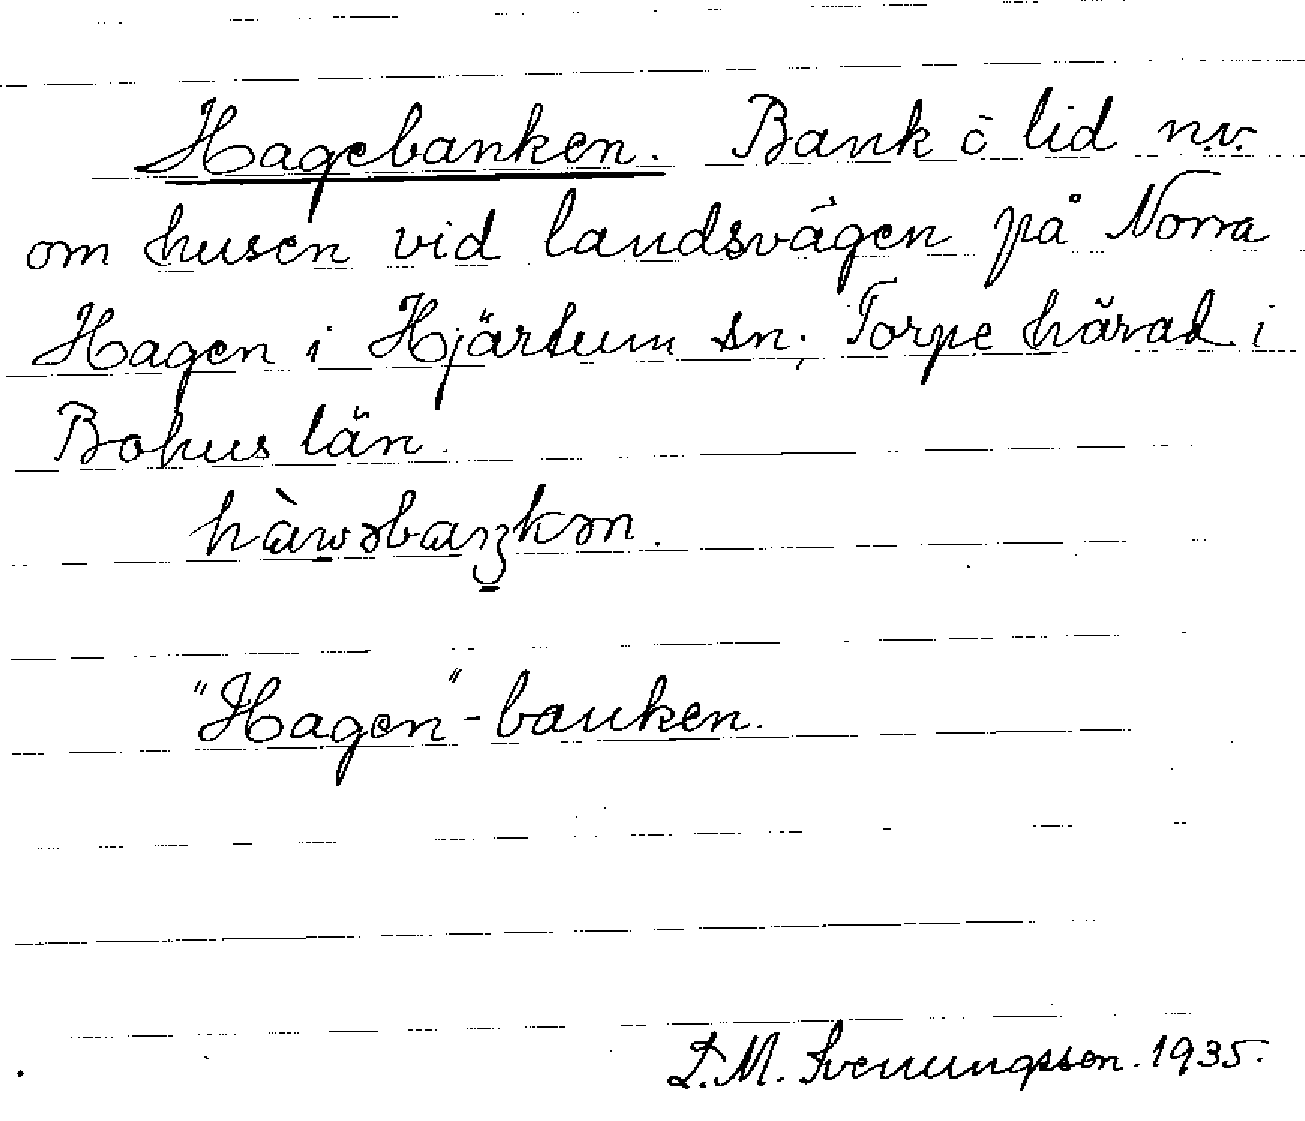 Hagebanken. Bank ö lid n.v.
om husen vid landsvägen på Norra
Hagen i Hjärtum sn; Torpe härad i
Bohus län
hàwəbaŋkən.
"Hagen"-banken.
L.M. Svenungsson. 1935.